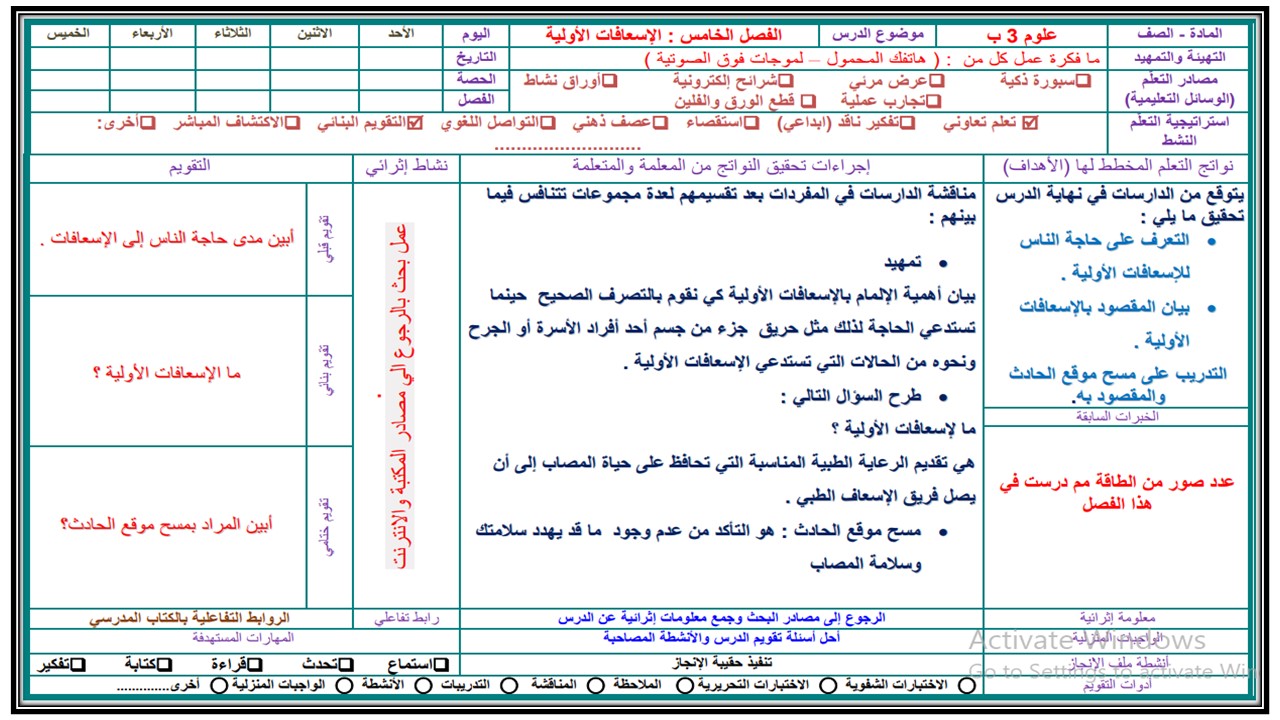 المادة - الصف
علوم 3 ب
موضوع الدرس
الفصل الخامس : الإسعافات الأولية
اليوم
الأحد
الاثنين
الثلاثاء
الأربعاء
الخميس
التهيئة والتمهيد
ما فكرة عمل كل من : ( هاتفك المحمول – لموجات فوق الصوتية )
التاريخ
مصادر التعلّم
(الوسائل التعليمية)
❑سبورة ذكية ❑عرض مرئي ❑شرائح إلكترونية ❑أوراق نشاط
❑تجارب عملية ❑ قطع الورق والفلين
الحصة
الفصل
استراتيجية التعلّم
النشط
☑ تعلم تعاوني ❑تفكير ناقد (ابداعي) ❑استقصاء ❑عصف ذهني ❑التواصل اللغوي ☑التقويم البنائي ❑الاكتشاف المباشر ❑أخرى:
..........................
نواتج التعلم المخطط لها (الأهداف)
إجراءات تحقيق النواتج من المعلمة والمتعلمة
نشاط إثرائي
التقويم
يتوقع من الدارسات في نهاية الدرس
تحقيق ما يلي :
• التعرف على حاجة الناس
للإسعافات الأولية .
• بيان المقصود بالإسعافات
الأولية .
التدريب على مسح موقع الحادث
والمقصود به.
الخبرات السابقة
عدد صور من الطاقة مم درست في
هذا الفصل
مناقشة الدارسات في المفردات بعد تقسيمهم لعدة مجموعات تتنافس فيما
بينهم :
• تمهيد
بيان أهمية الإلمام بالإسعافات الأولية كي نقوم بالتصرف الصحيح حينما
تستدعي الحاجة لذلك مثل حريق جزء من جسم أحد أفراد الأسرة أو الجرح
ونحوه من الحالات التي تستدعي الإسعافات الأولية .
• طرح السؤال التالي :
ما لإسعافات الأولية ؟
هي تقديم الرعاية الطبية المناسبة التي تحافظ على حياة المصاب إلى أن
يصل فريق الإسعاف الطبي .
• مسح موقع الحادث : هو التأكد من عدم وجود ما قد يهدد سلامتك
وسلامة المصاب
عمل بحث بالرجوع الي مصادر المكتبة والانترنت
تقويم قبلي
أبين مدى حاجة الناس إلى الإسعافات .
تقويم بنائي
ما الإسعافات الأولية ؟
تقويم ختامي
أبين المراد بمسح موقع الحادث؟
معلومة إثرائية
الرجوع إلى مصادر البحث وجمع معلومات إثرائية عن الدرس
رابط تفاعلي
الروابط التفاعلية بالكتاب المدرسي
الواجبات المنزلية
أحل أسئلة تقويم الدرس والأنشطة المصاحبة
المهارات المستهدفة
أنشطة ملف الإنجاز
تنفيذ حقيبة الإنجاز
❑استماع ❑تحدث ❑قراءة ❑كتابة ❑تفكير
أدوات التقويم
○ الاختبارات الشفوية ○ الاختبارات التحريرية ○ الملاحظة ○ المناقشة ○ التدريبات ○ الأنشطة ○ الواجبات المنزلية ○ أخرى..............
Activate Windows
Go to Settings to activate Win